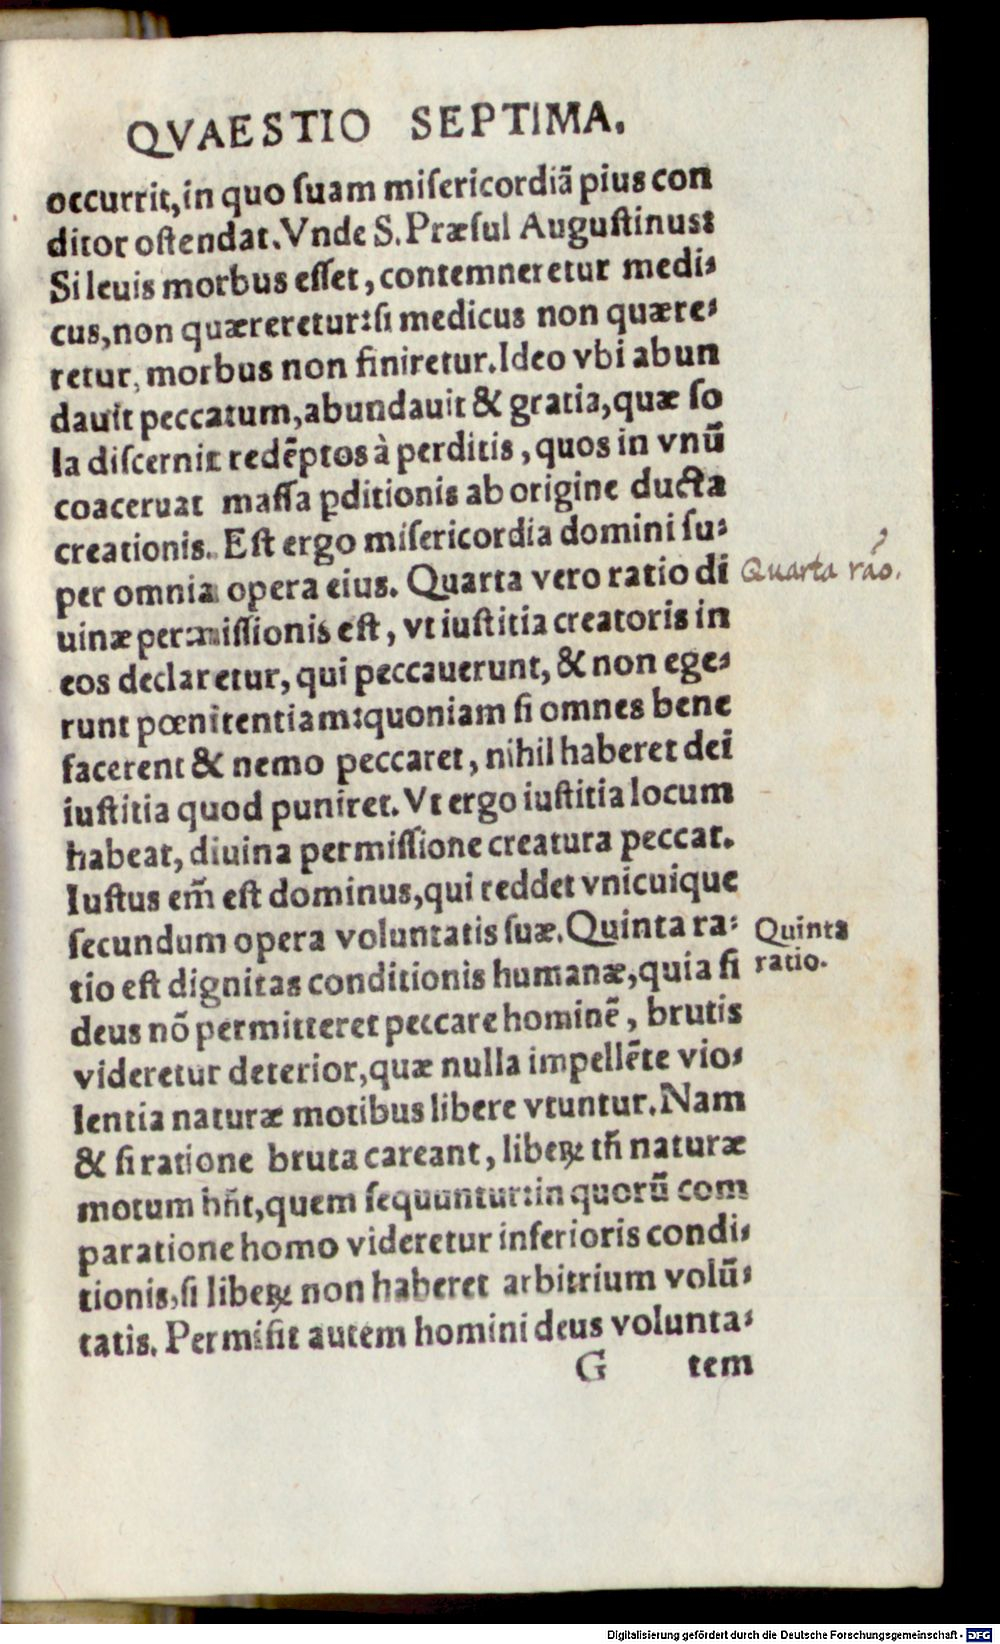 QVAESTIO SEPTIMA.
occurrit, in quo suam misericordiã pius con
ditor ostendat. Vnde S. Præsul Augustinus:
Si leuis morbus esset, contemneretur medi-
cus, non quæreretur: si medicus non quære-
retur, morbus non finiretur. Ideo vbi abun
dauit peccatum, abundauit & gratia, quæ so
la discernit redẽptos à perditis, quos in vnũ
coaceruat massa ꝑditionis ab origine ducta
creationis. Est ergo misericordia domini su-
per omnia opera eius. Quarta vero ratio di
Quarta rão.
uinæ permissionis est, vt iustitia creatoris in
eos declaretur, qui peccauerunt, & non ege-
runt pœnitentiam: quoniam si omnes bene
facerent & nemo peccaret, nihil haberet dei
iustitia quod puniret. Vt ergo iustitia locum
habeat, diuina permissione creatura peccat.
Iustus em̃ est dominus, qui reddet vnicuique
secundum opera voluntatis suæ. Quinta ra-
Quinta
tio est dignitas conditionis humanæ, quia si
ratio.
deus nõ permitteret peccare hominẽ, brutis
videretur deterior, quæ nulla impellẽte vio-
lentia naturæ motibus libere vtuntur. Nam
& si ratione bruta careant, libeꝝ tñ naturæ
motum hñt, quem sequuntur: in quorũ com
paratione homo videretur inferioris condi-
tionis, si libeꝝ non haberet arbitrium volũ-
tatis. Permisit autem homini deus volunta-
G tem
Digitalisierung gefördert durch die Deutsche Forschungsgemeinschaft - DFG